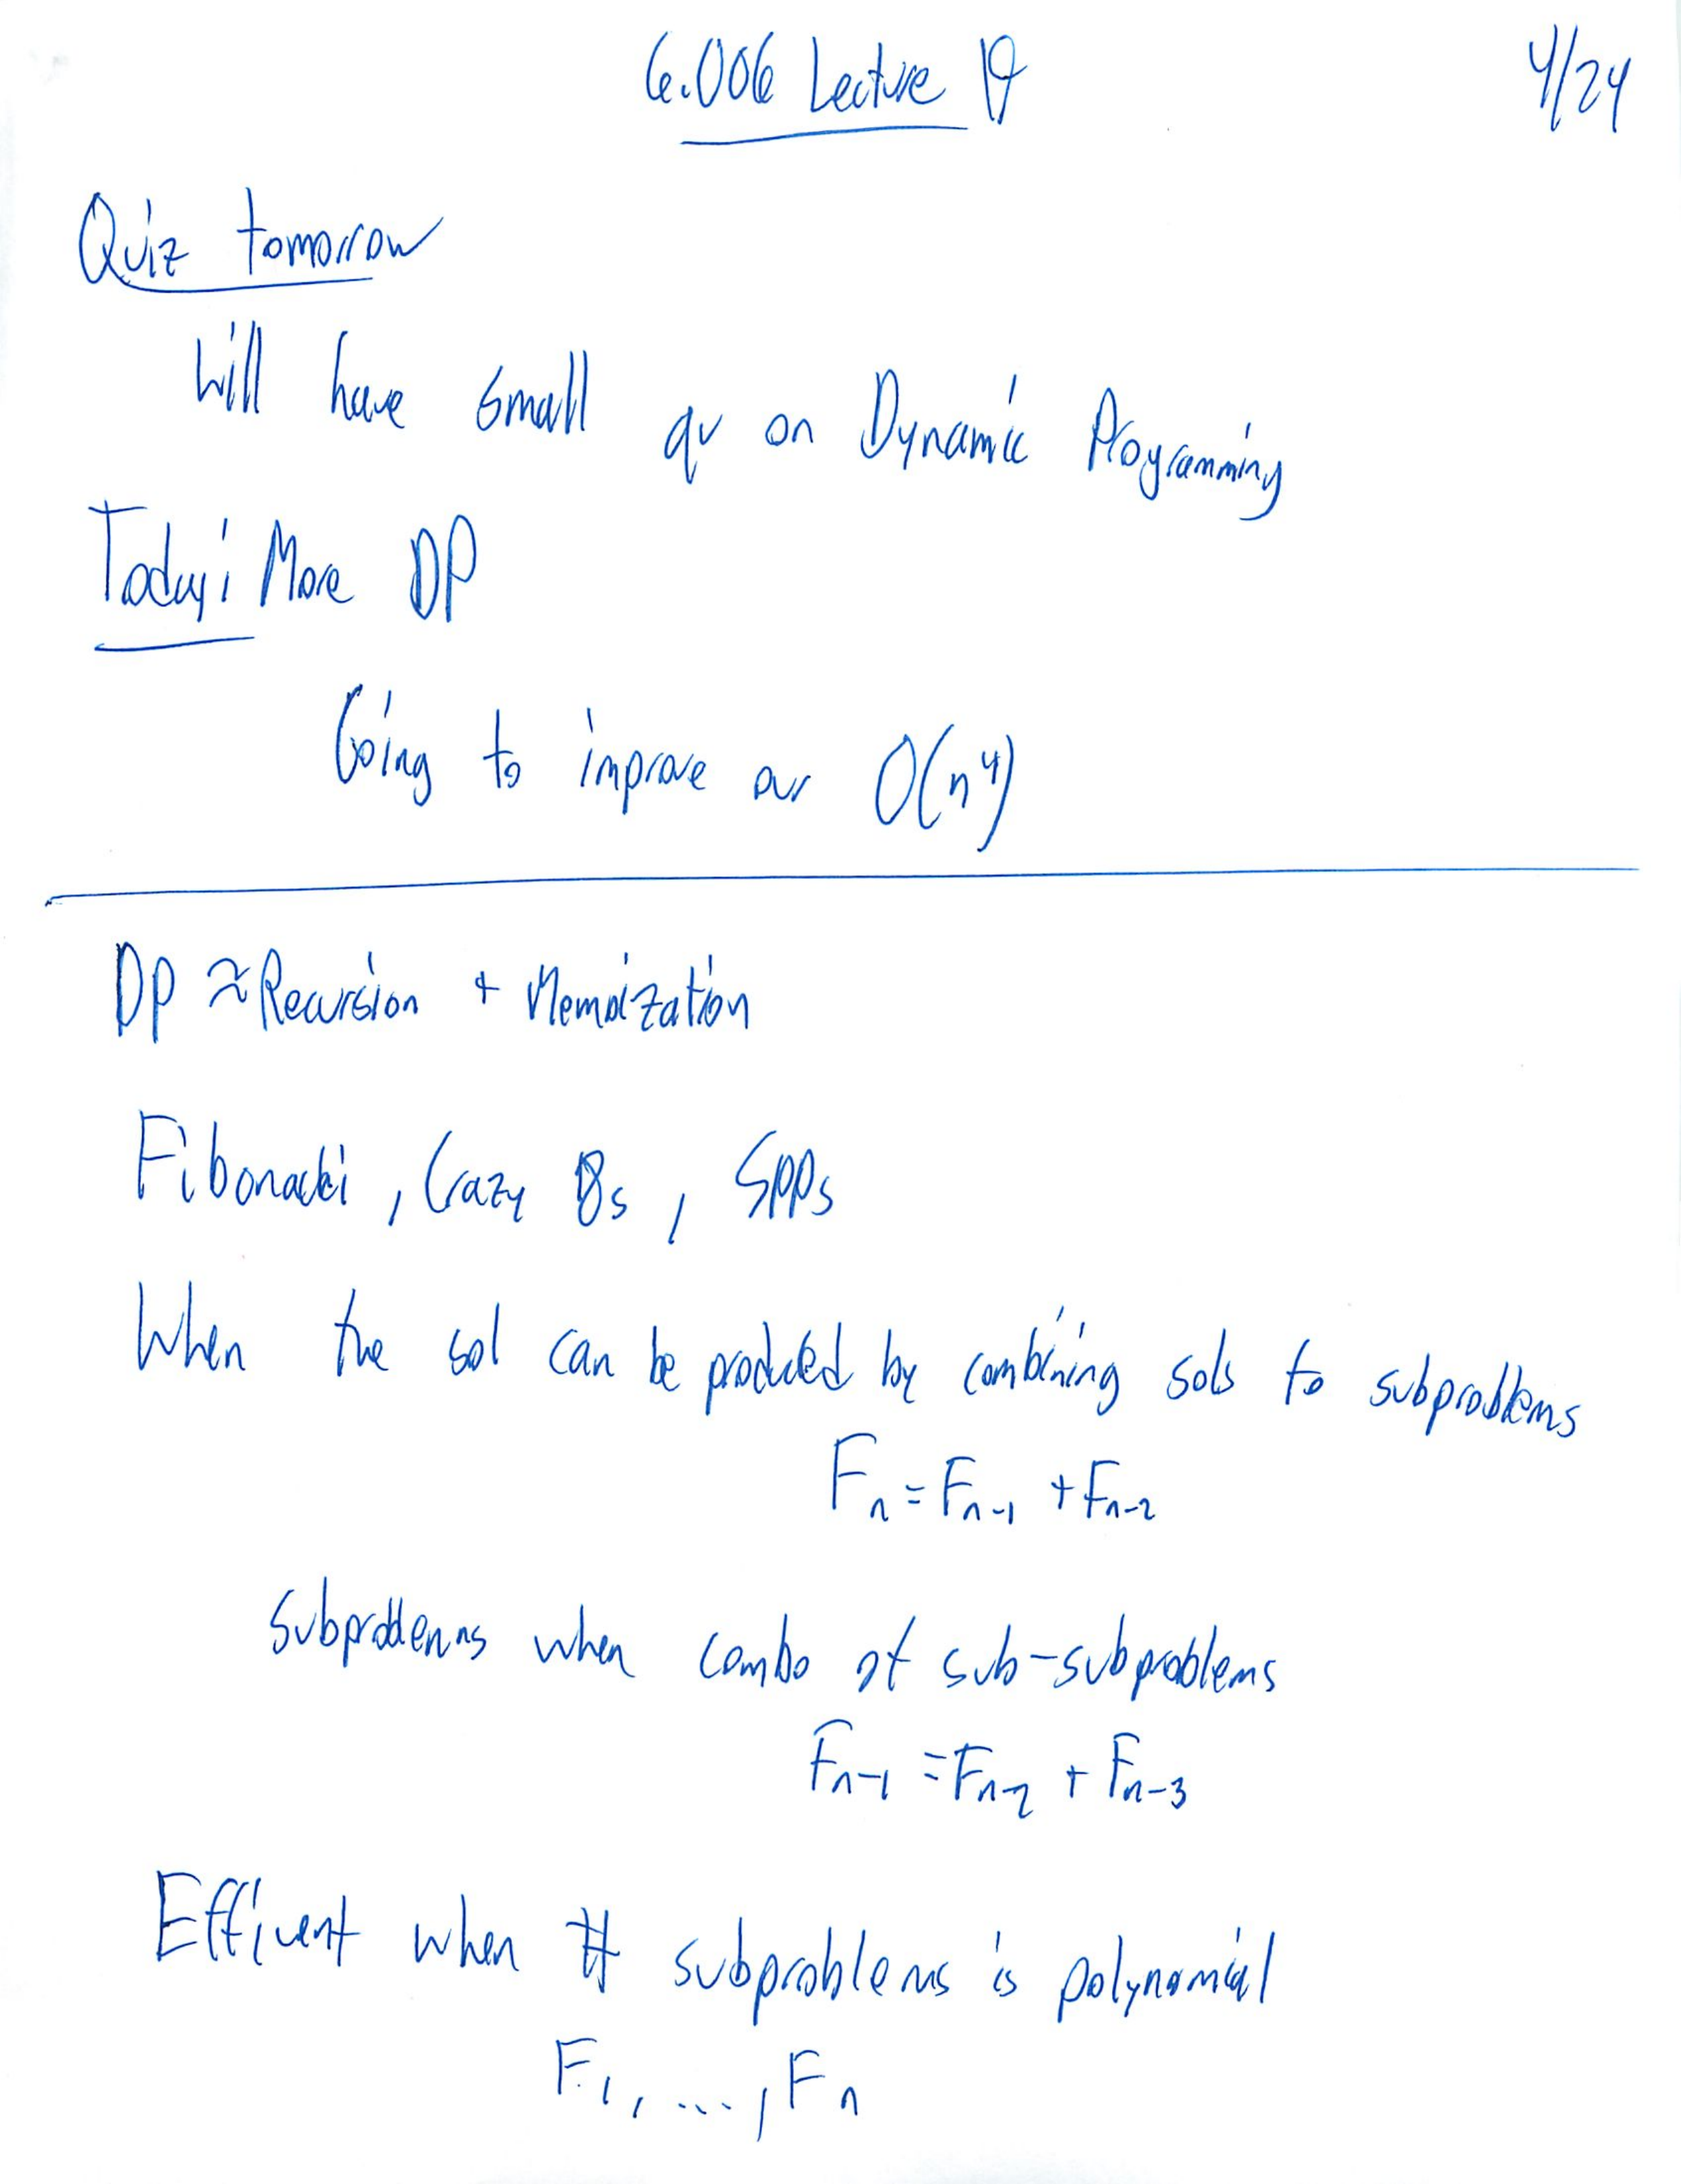 6.006 Lecture 19
4/24
Quiz tomorrow
Will have small qu on Dynamic Programming
Today: More DP
Going to improve our O(n⁴)
DP ≈ Recursion + Memoization
Fibonacci, Crazy 8s, SPPs
When the sol can be produced by combining sols to subproblems
Fₙ = Fₙ₋₁ + Fₙ₋₂
Subproblems when combo of sub-subproblems
Fₙ₋₁ = Fₙ₋₂ + Fₙ₋₃
Efficent when # subproblems is polynomial
F₁, ..., Fₙ